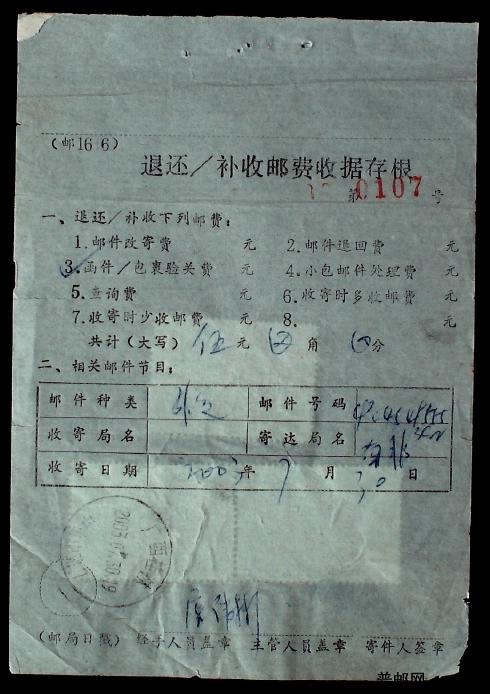 (邮16 6)
退还／补收邮费收据存根
第 0107 号
一、退还／补收下列邮费：
1.邮件改寄费 元 2.邮件退回费 元
3.函件／包裹验关费 元 4.小包邮件处理费 元
5.查询费 元 6.收寄时多收邮费 元
7.收寄时少收邮费 元 8. 元
共计（大写） 伍 元 角 分
二、相关邮件节目：
邮件种类 邮件号码
收寄局名 寄达局名 南非
收寄日期 2003 年 7 月 30 日
2003.07.30.19
(邮局日戳) 经手人员盖章 主管人员盖章 寄件人签章
普邮网